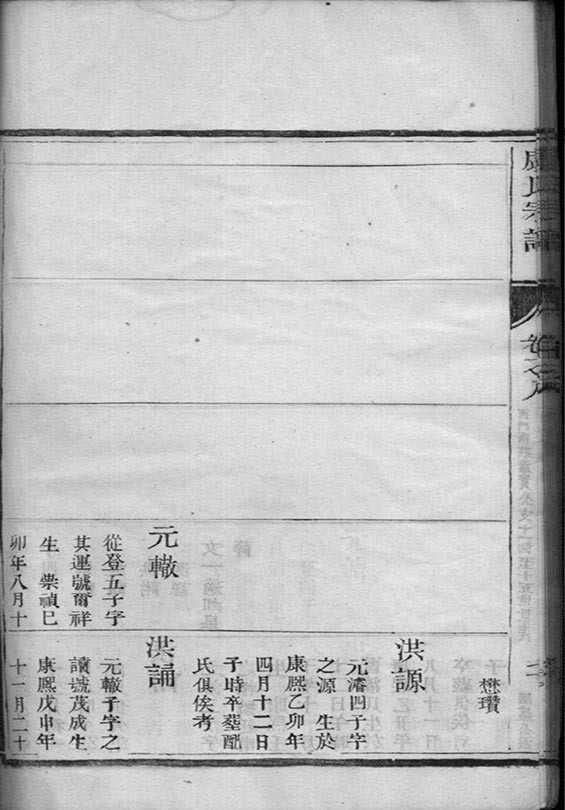 盧氏宗譜
卷之八
懋瓚
洪源
元濬四子字
之源 生於
康熙乙卯年
四月十二日
子時卒塟配
氏俱俟考
元轍
從登五子字
其運號爾祥
生 崇禎巳
卯年八月十
洪誦
元轍子字之
讀號茂成生
康熙戊申年
十一月二十